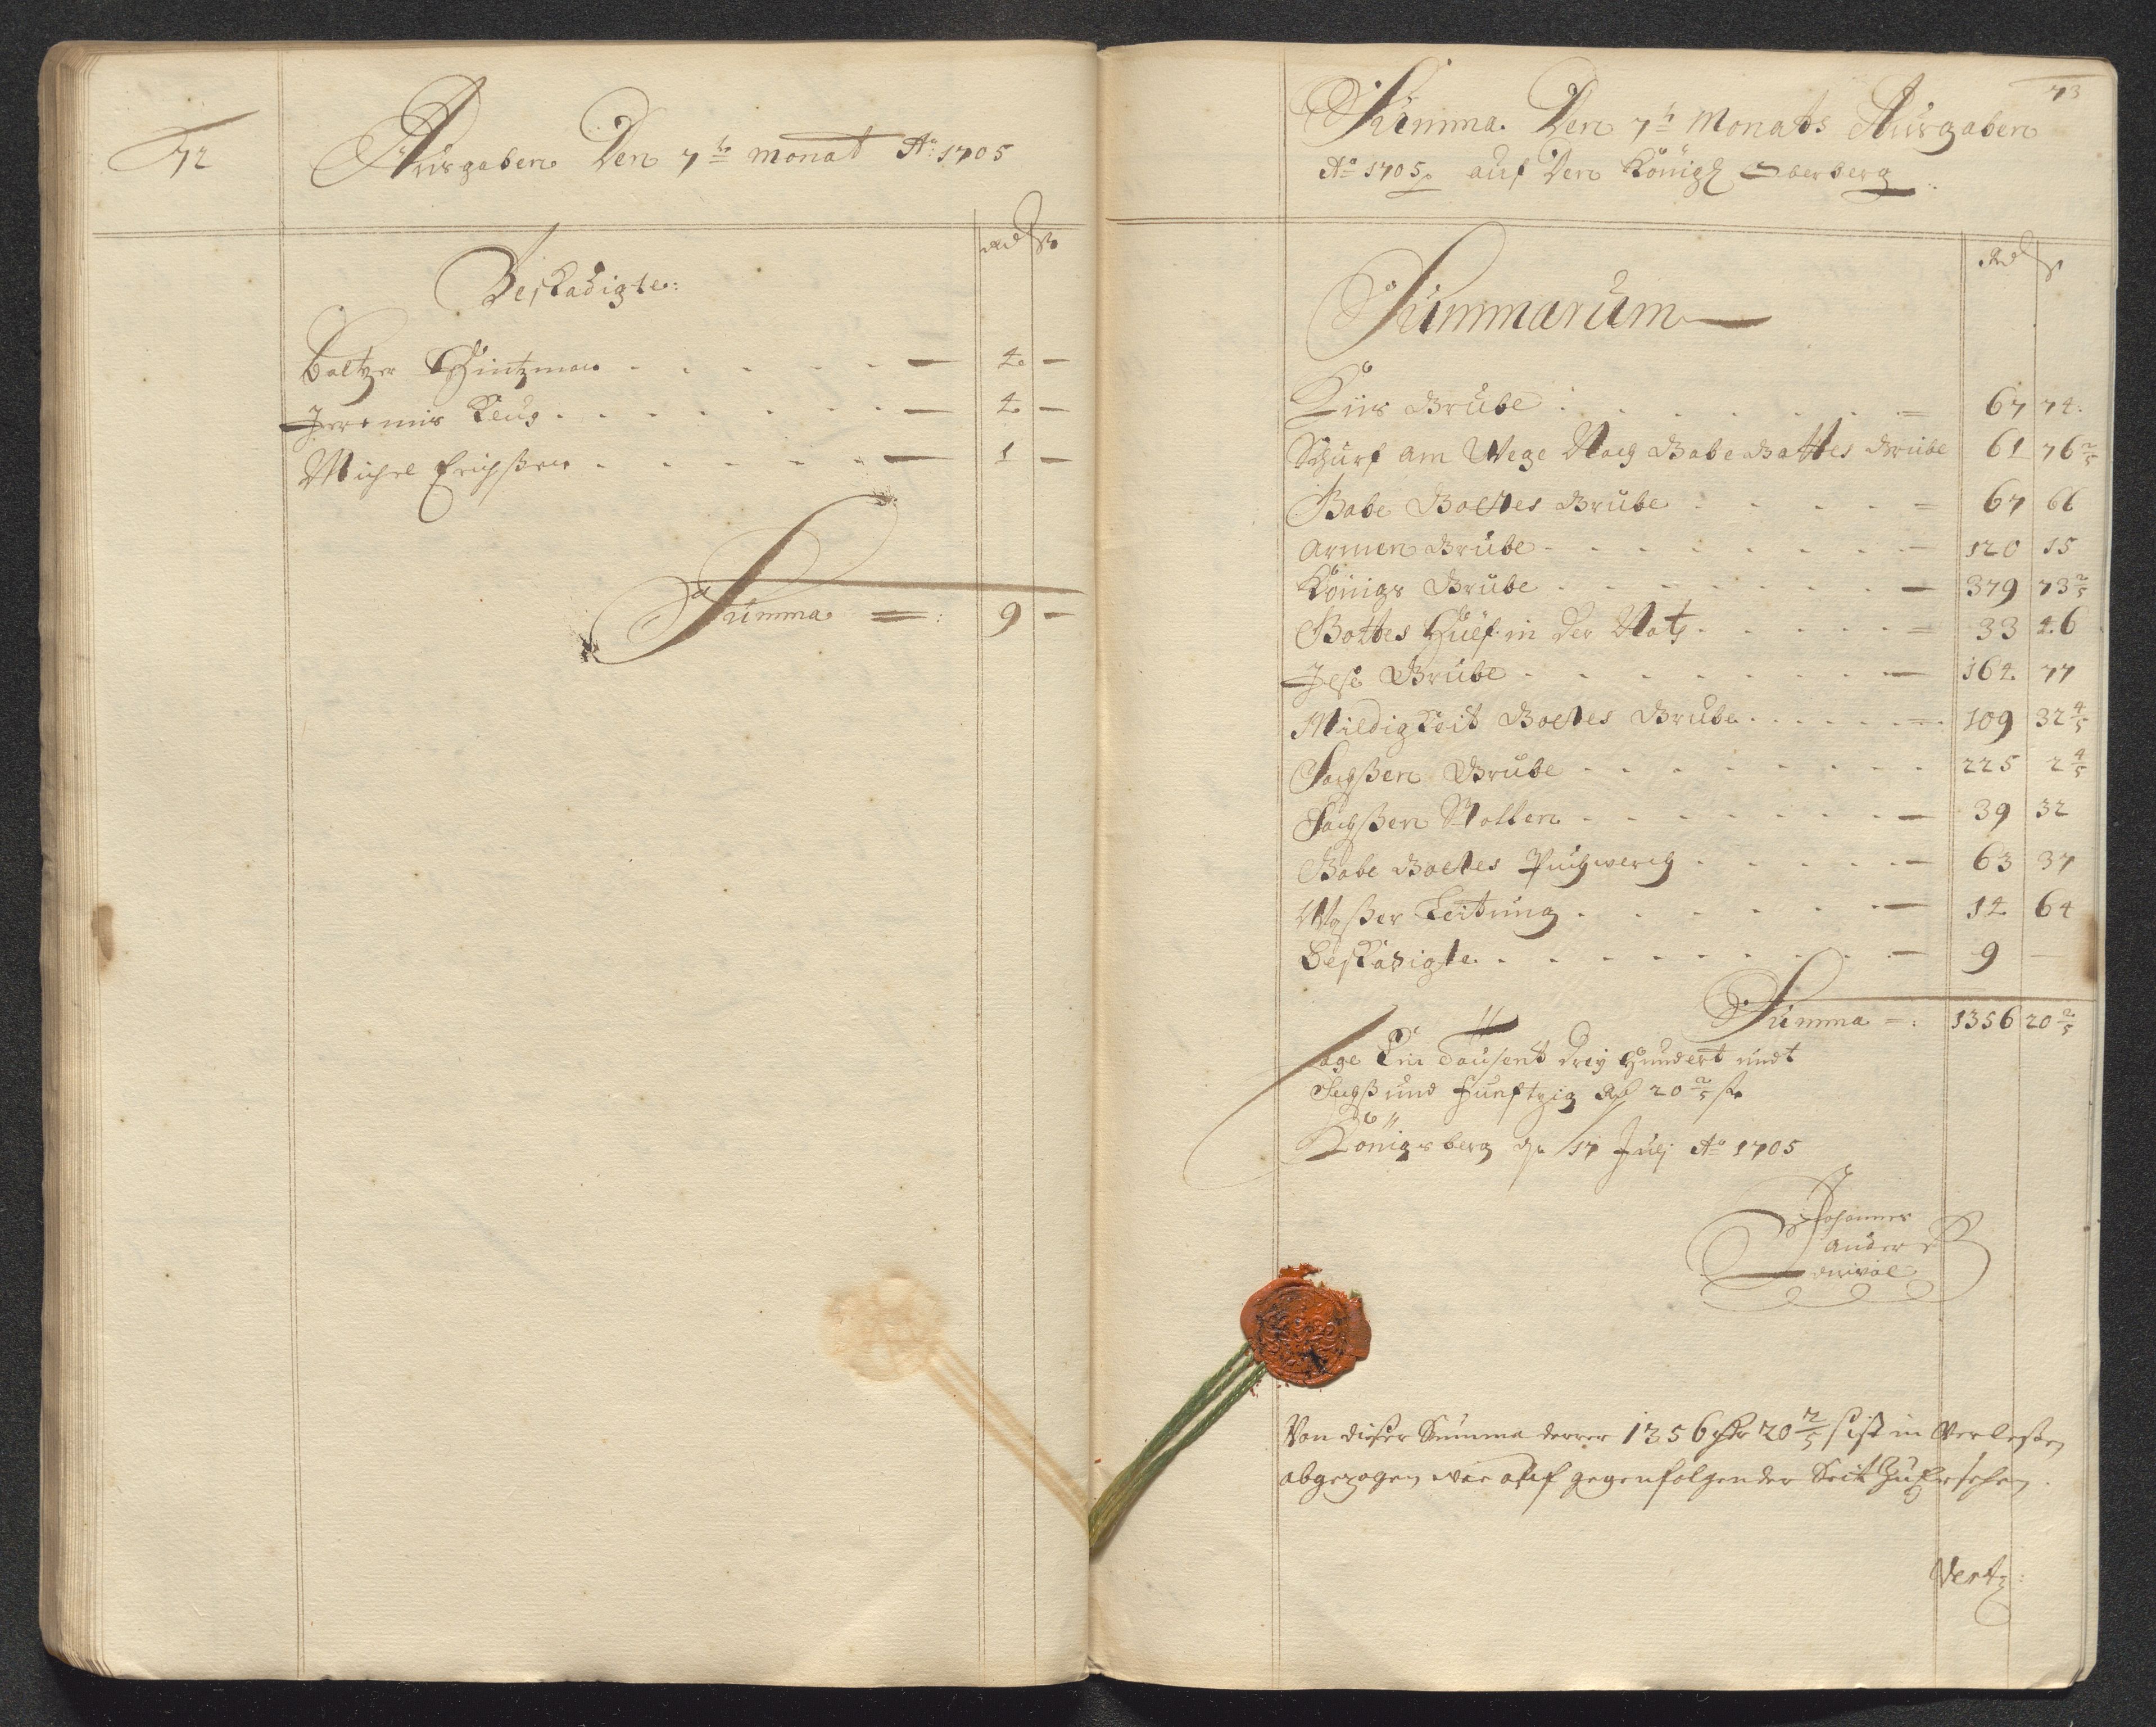 72
Ausgaben Den 7ts monat Ao: 1705
Rd ß
Beskadigte:
Baltzer Hintzman - 4 -
Jeremis - 4 -
Michel Erichßen - 1 -
Summa =: 9 -
73
Summa Den 7ts Monats Ausgaben
Ao 1705 auf Den Königl Oberberg
Rd ß
Summarum
Grube = 67 74
Schürf am Wege Nach Gabe Gottes Grube 61 76 2/5
Gabe Gottes Grube = 67 66
Armen Grube - 120 15
Königs Grube - 379 73 2/5
Gottes Hülf in der Noth = 33 46
Grube - 164 77
Mildigkeit Gottes Grube = 109 32 4/5
Sachßen Grube 225 2 4/5
Sachßen Stollen - 39 32
Gabe Gottes Puchwerch - 63 37
Waßer Leitung - 14 64
Beskadigte - 9 -
Summa =: 1356 20 2/5
Sage Ein Tausent Drey Hundert undt
Sechß und Funftzig Rd 20 2/5 ß
Königsberg d. 17 Julj Ao 1705
Johannes
Von dießer Summa derer 1356 Rdr 20 2/5 ß ist in
abgezogen wie auf gegenfolgender Seit Zu Ersehen.
Vert: